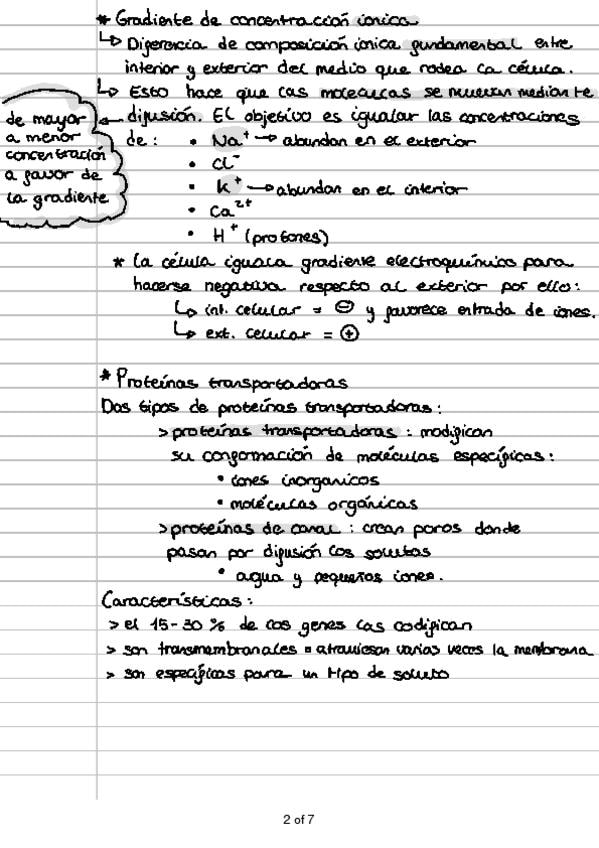 * Gradiente de concentración iónica
↳ Diferencia de composición iónica fundamental entre
interior y exterior del medio que rodea la célula.
↳ Esto hace que las moléculas se muevan mediante
difusión. El objetivo es igualar las concentraciones
de mayor
a menor
concentración
a favor de
la gradiente
de : • Na⁺ → abundan en el exterior
• Cl⁻
• K⁺ → abundan en el interior
• Ca²⁺
• H⁺ (protones)
* La célula iguala gradiente electroquímico para
hacerse negativa respecto al exterior por ello:
↳ int. celular = ⊖ y favorece entrada de iones.
↳ ext. celular = ⊕
* Proteínas transportadoras
Dos tipos de proteínas transportadoras:
> proteínas transportadoras : modifican
su conformación de moléculas específicas:
• iones inorganicos
• moléculas orgánicas
> proteínas de canal : crean poros donde
pasan por difusión los solutos
• agua y pequeños iones.
Características:
> el 15-30 % de los genes las codifican
> son transmembranales = atraviesan varias veces la membrana
> son específicas para un tipo de soluto
2 of 7